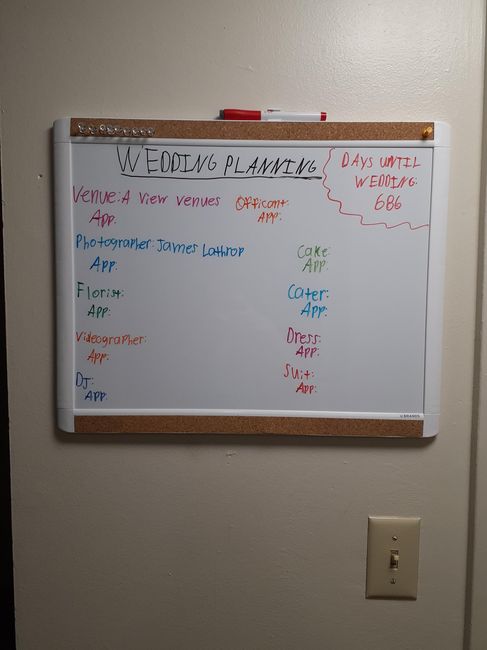 WEDDING PLANNING
DAYS UNTIL
WEDDING:
686
Venue: A View Venues
App:
Officant:
App:
Photographer: James Lathrop
App:
Cake:
App:
Florist:
App:
Cater:
App:
Videographer:
App:
Dress:
App:
DJ:
App:
Suit:
App:
U BRANDS